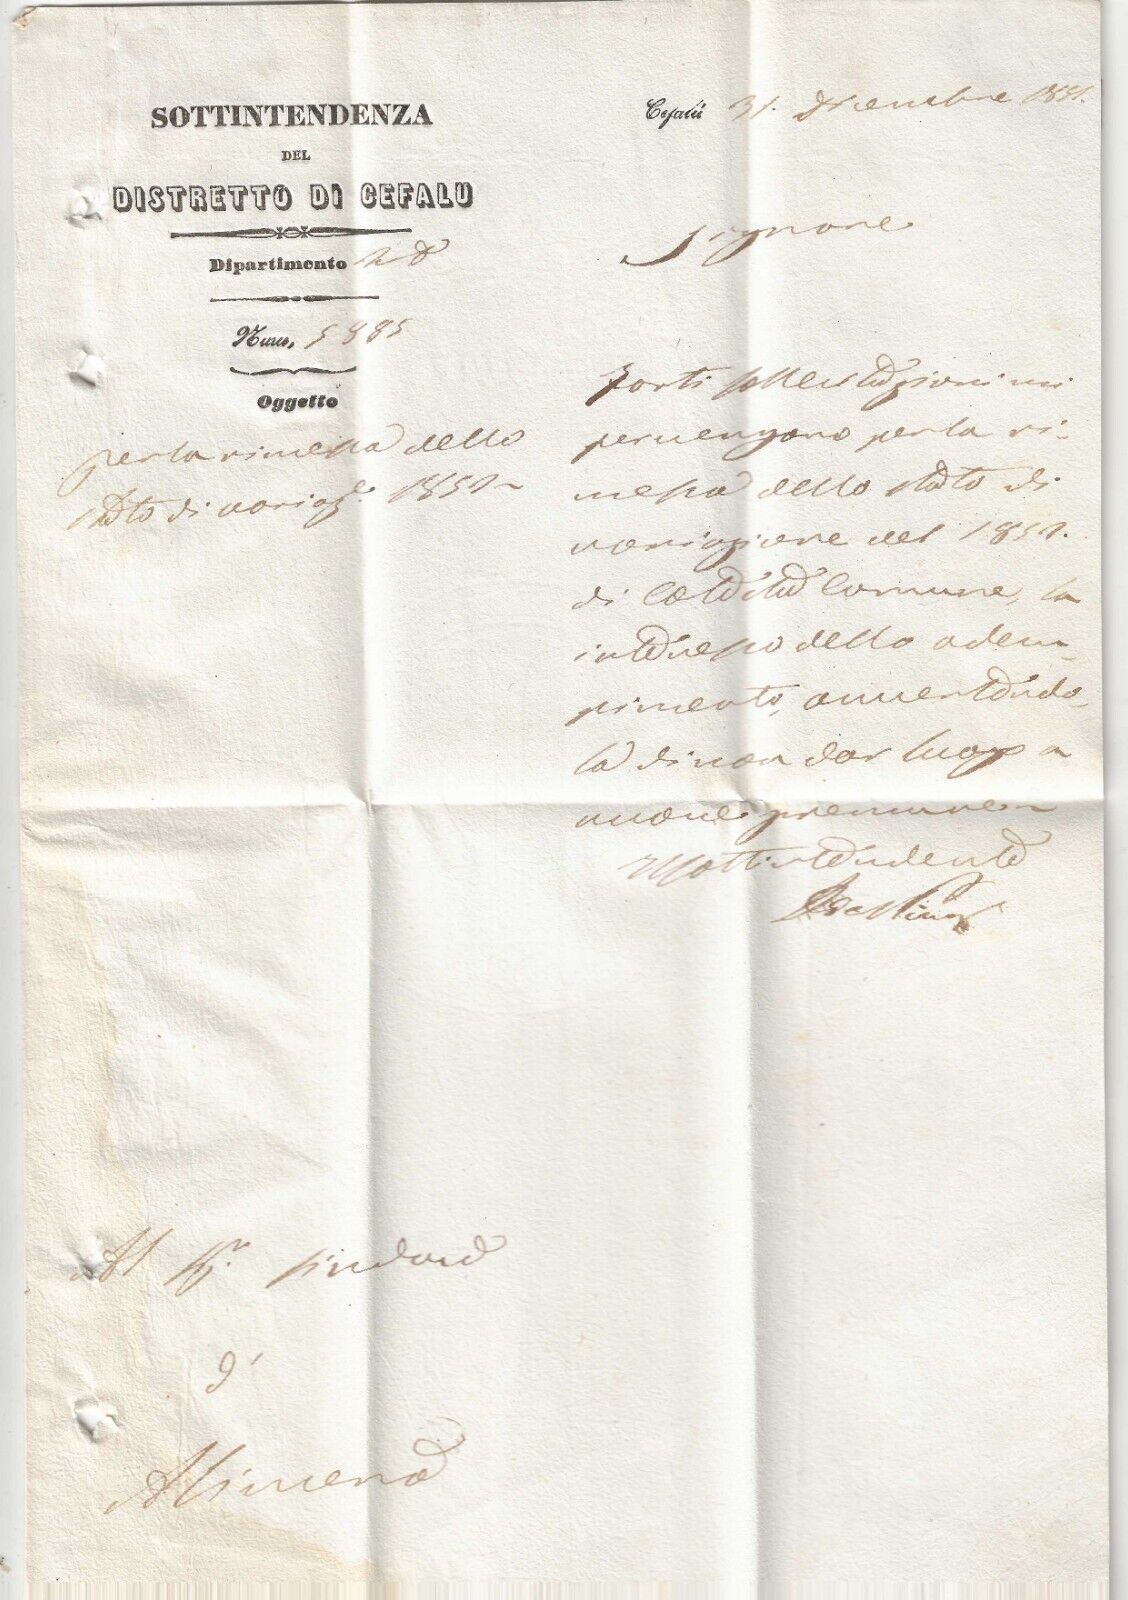 SOTTINTENDENZA
DEL
DISTRETTO DI CEFALU
Dipartimento 2º
Num. 5885
Oggetto
per la rimessa dello
stato di variaz.i 1852
Cefalù 31. Dicembre 1851.
Signore
Forti sollecitazioni mi
pervengono per la ri-
messa dello stato di
variazione del 1852.
di Comune, la
interesso dello adem-
pimento, avvertendo-
la di non dar luogo a
nuove premure
Il Sottintendente
Al Sig.r Sindaco
d'
Alimena